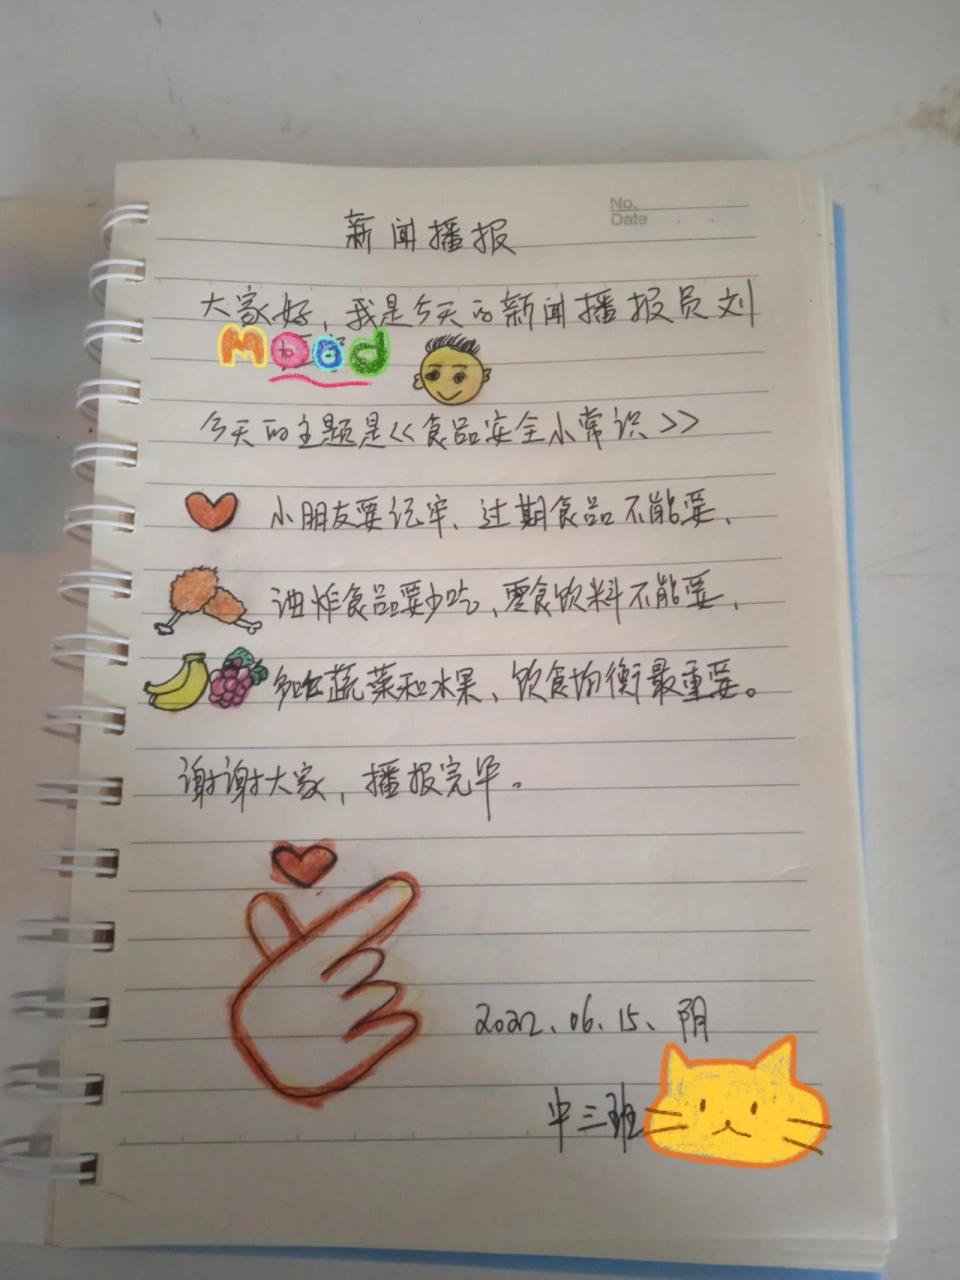 No.
Date
新闻播报
大家好，我是今天的新闻播报员刘
Mood
今天的主题是<<食品安全小常识>>
小朋友要记牢、过期食品不能要、
油炸食品要少吃、零食饮料不能要、
多吃蔬菜和水果、饮食均衡最重要。
谢谢大家，播报完毕。
2022.06.15、阴
中三班